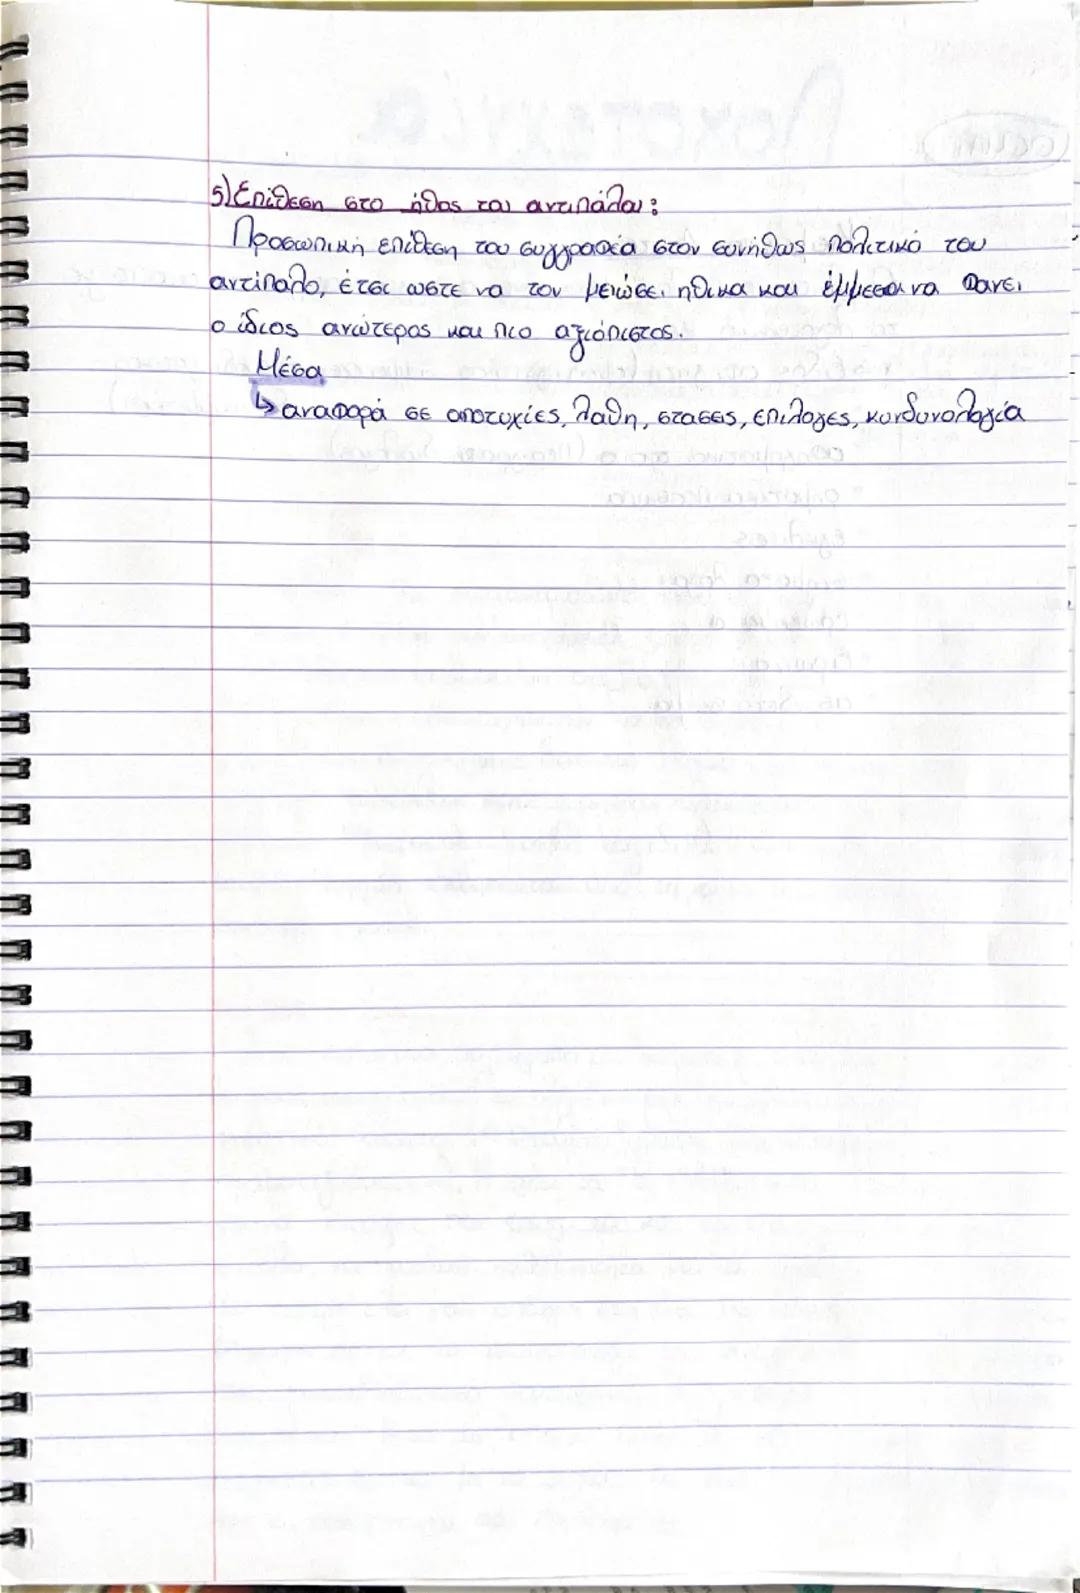 5) Επίθεση στο ήθος του αντιπάλου:
Προσωπική επίθεση του συγγραφέα στον συνήθως πολιτικό του
αντίπαλο, έτσι ωστε να τον μειώσει ηθικα και έμμεσα να φανει
ο ίδιος ανώτερος και πιο αξιόπιστος.
Μέσα
↳ αναφορά σε αποτυχίες, λαθη, στασεις, επιλογες, κινδυνολογία